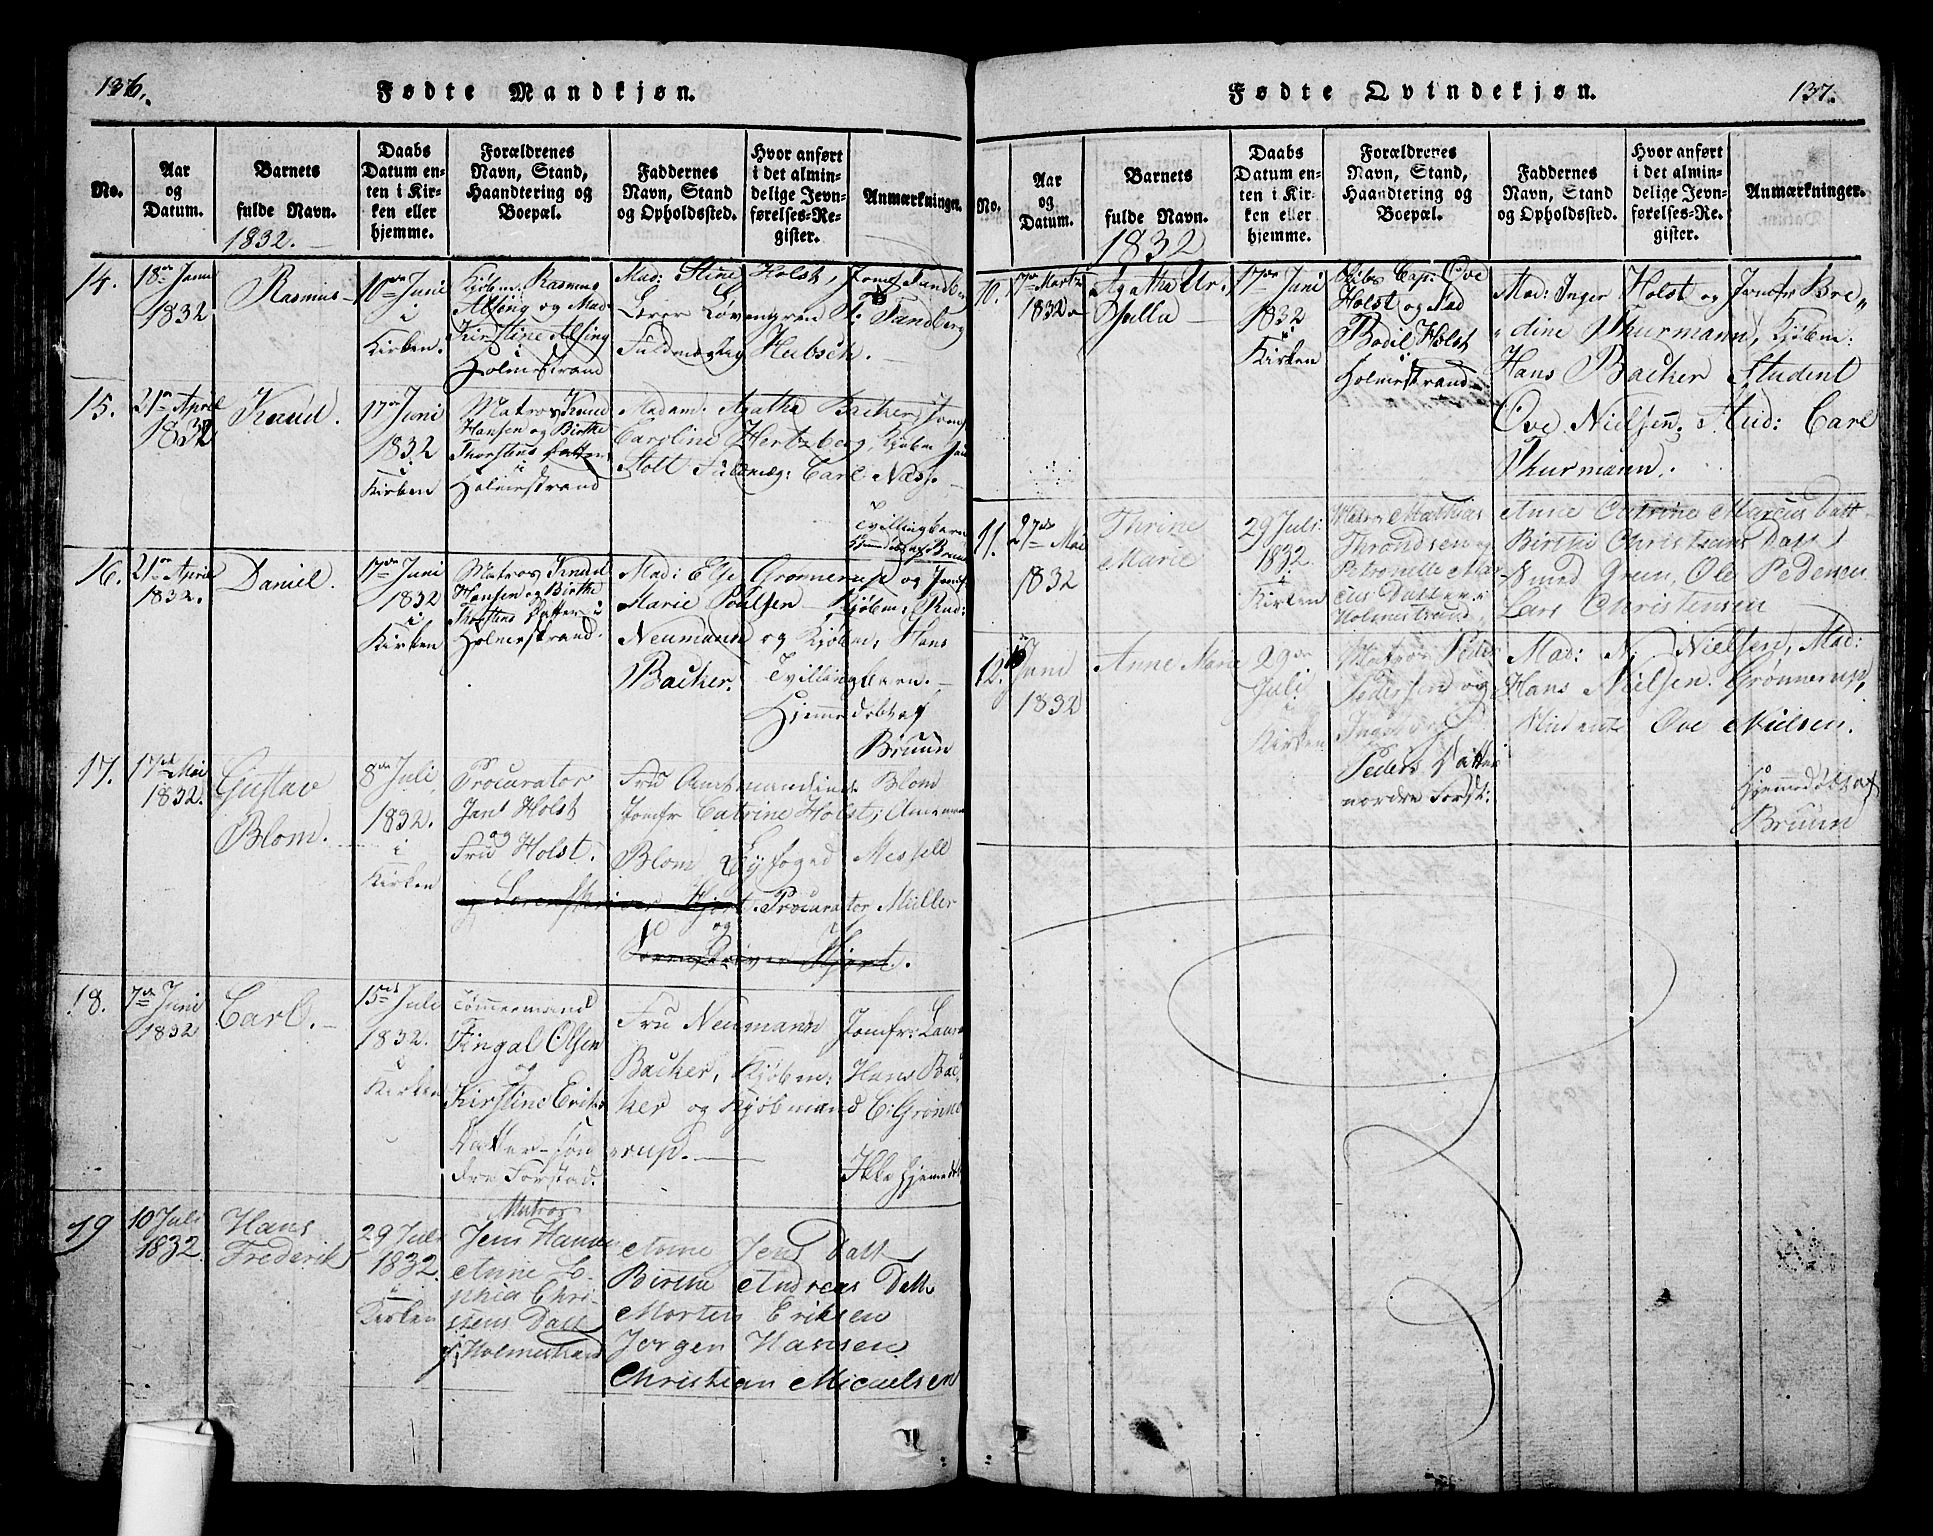 136.
Fødte Mandkjøn.
No.
Aar
og
Datum.
Barnets
fulde Navn.
1832.
Daabs
Datum en-
ten i Kir-
ken eller
hjemme.
Forældrenes
Navn, Stand,
Haandtering og
Boepæl.
Faddernes
Navn, Stand
og Opholdssted.
Hvor anført
i det almin-
delige Jevn-
førelses-Re-
gister.
Anmærkninger.
14.
1832
Rasmus
10de Juni
i
Kirken.
Kjøbm. Rasmus
Alsing og Mad
Kirstine Alsing
i
Holmestrand
Mad: Stine Holst, Jomf Sandberg
Løvengren Sandberg
Fuldmægtig Hubsch.
15.
21de April
1832
Knud.
17de Juni
1832
i
Kirken
Matros Knud
Hansen og Birthe
Thorstens Datter
i
Holmestrand
Madam. Agatha Backer, Jomf
Caroline Hertzberg, Kjøbm
Stolt Fuldmæg: Carl Næss.
Tvillingbarn
Hjemmedøbt af Bruun
16.
21de April
1832.
Daniel.
17de Juni
1832
i
Kirken
Matros Knud
Hansen og Birthe
Thorstens Datter i
Holmestrand.
Mad: Else Grønnerup og Jomf
Marie Poulsen Kjøbm: Rud:
Neumann og Kjøbm: Hans
Backer.
Tvillingbarn.
Hjemmedøbt af
Bruun
17.
17de Mai
1832.
Gustav
Blom.
8de Juli
1832.
i
Kirken
Procurator
Jans Holst
og
Fru Holst.
og Sorenskriver Hjort
Fru Amtmandinde Blom
Jomfr Catrine Holst,
Blom Byfoged Messell
Procurator Müller
og
Sorenskriver Hjort.
18.
7de Juni
1832
Carl.
15de Juli
1832.
i
Kirken
Tømmermand
Fingal Olsen
og
Kirstine Eriks
Datter søn
dre Forstad.
Fru Neumann Jomfr: Laura
Backer, Kjøbm: Hans Bac
ker og Kjøbmand C: Grønne
rup.
Ikke hjemmedøbt
19
10 Juli
1832.
Hans
Frederik
29 Juli
1832.
i
Kirken
Matros
Jens Hansen
Anne So-
phia Chri-
stens Datt
i Holmestrand
Anne Jens Datt
Birthe Andreas Datt
Morten Eriksen
Jørgen Hansen
Christian Micaelsen
137.
Fødte Qvindekjøn.
No.
Aar
og
Datum.
Barnets
fulde Navn.
1832
Daabs
Datum en-
ten i Kir-
ken eller
hjemme.
Forældrenes
Navn, Stand,
Haandtering og
Boepæl.
Faddernes
Navn, Stand
og Opholdssted.
Hvor anført
i det almin-
delige Jevn-
førelses-Re-
gister.
Anmærkninger.
10.
17de Marts
1832
Agatha Ur-
sulla
17de Juni
1832
i
Kirken
Skibs Cap: Ove
Holst og Mad
Bodil Holst
i
Holmestrand
Mad: Inger Holst og Jomfr Bre-
dine Thurmann, Kjøbm:
Hans Backer Student
Ove Nielsen, Stud: Carl
Thurmann.
11.
27de Mai
1832
Thrine
Marie
29 Juli
1832.
i
Kirken
Matros Mathias
Throndsen og
Petronelle Mar
cus Datter i
Holmestrand
Anne Catrine Marcus Datt
Birthe Christians Datt
Smed Grun, Ole Pedersen
Lars Christensen
12.
Juni
1832
Anne Marie
29de
Juli
i
Kirken
Matros Peder
Pedersen og
Ingeborg
Peders Datter
nordre Forst:
Mad: N. Nielsen, Mad:
Hans Nielsen. Grønnerup,
Student Ove Nielsen.
Hjemmedøbt af
Bruun